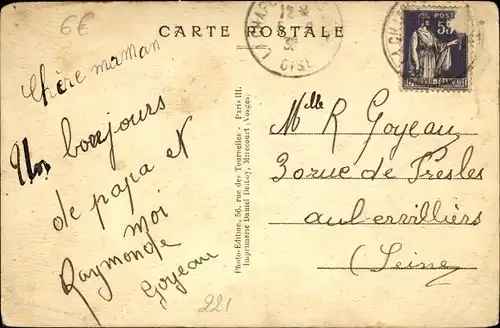 6€
CARTE POSTALE
OISE
POSTES
55
Chère maman
Un bonjours
de papa et
moi
Raymonde
Goyeau
221
Photo-Edition, 56, rue des Tournelles - Paris III.
Imprimerie Daniel Delboy, Mirecourt (Vosges)
Mlle R Goyeau
30 rue de Presles
aubervilliers
(Seine)